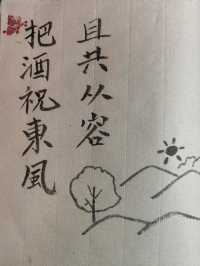 把酒祝東風
且共从容